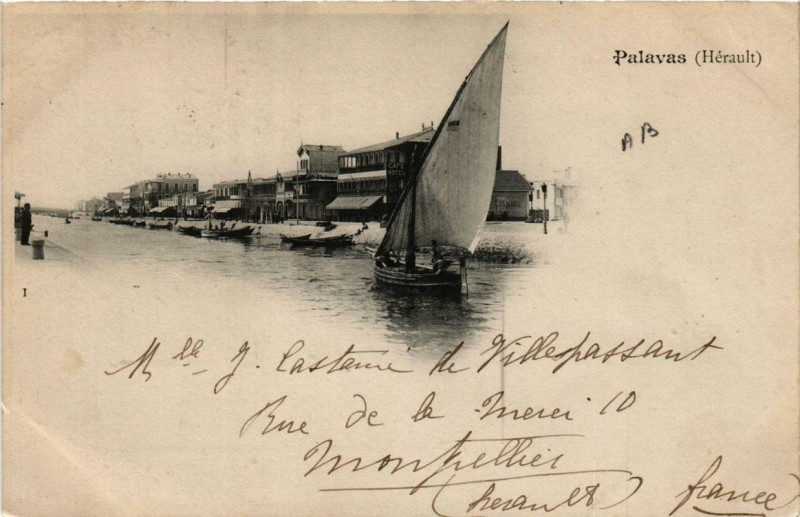 Palavas (Hérault)
A B
CAFÉ
HOTEL
1
Mlle J. Castanié de Villespassant
Rue de la Merci 10
Montpellier
(herault) france